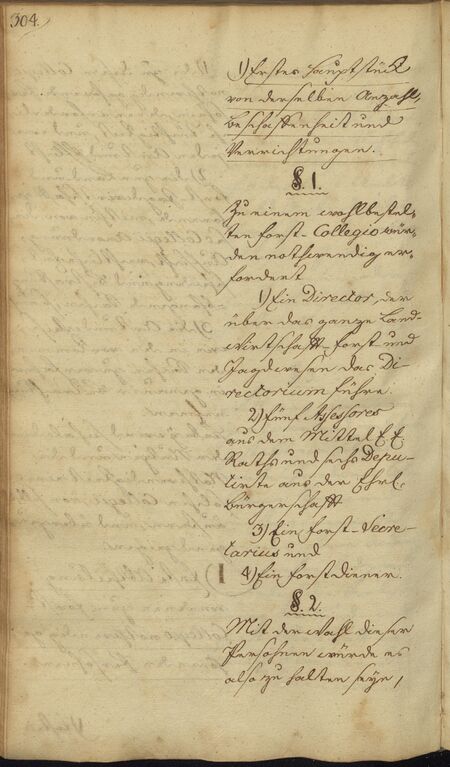 304.
1) Erstes Hauptstück
von derselben Anzahl,
Beschaffenheit und
Verrichtungen.
§. 1.
Zu einem wohlbestel-
ten Forst-Collegio wür-
den nothwendig er-
fordert
1) Ein Director, der
über das ganze Land-
wirtschafft-Forst und
Jagdwesen das Di-
rectorium führe.
2) Fünf Assessores
aus dem Mittel E. E.
Raths und sechs Depu-
tirte aus der Ehrl.
Bürgerschafft
3) Ein Forst-Secre-
tarius und
4) Ein Forstdiener.
§. 2.
Mit der Wahl dieser
Persohnen würde es
also zu halten seyn,